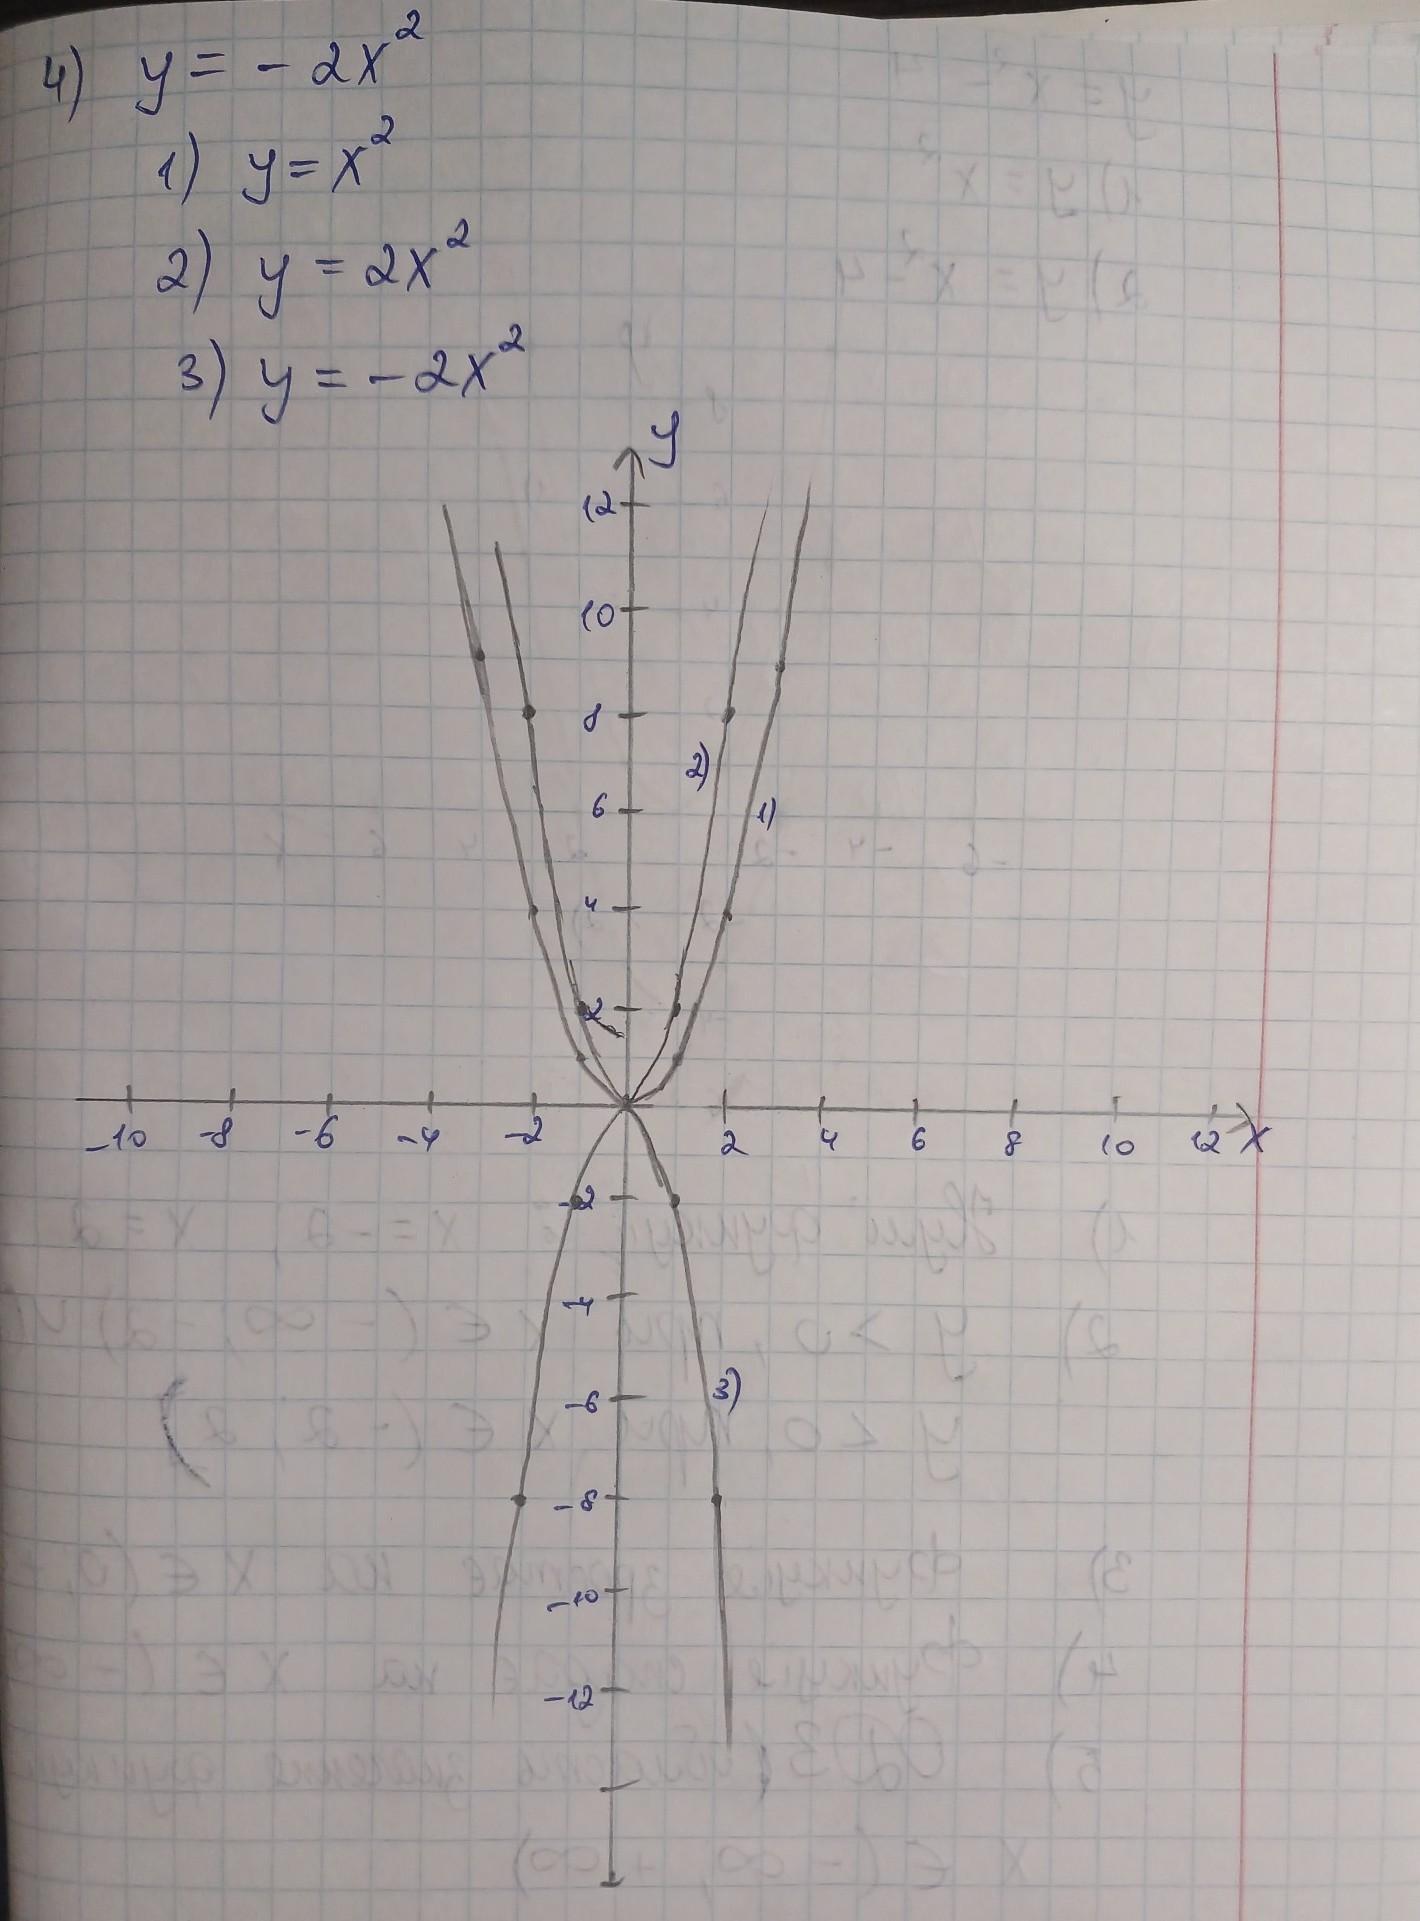 4) y = - 2x²
1) y = x²
2) y = 2x²
3) y = - 2x²
y
12
10
8
2)
6
1)
4
2
-10 -8 -6 -4 -2 2 4 6 8 10 12 x
-2
-4
3)
-6
-8
-10
-12